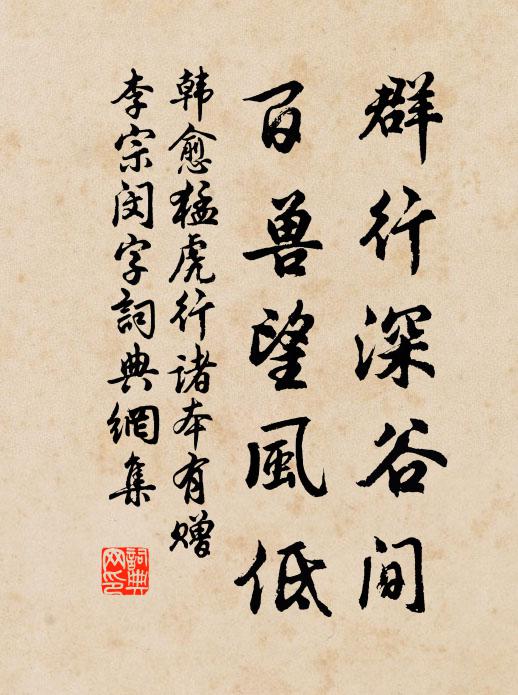 群行深谷间
百兽望風低
韩愈猛虎行诸本有赠
李宗闵字詞典網集
詞典
网印